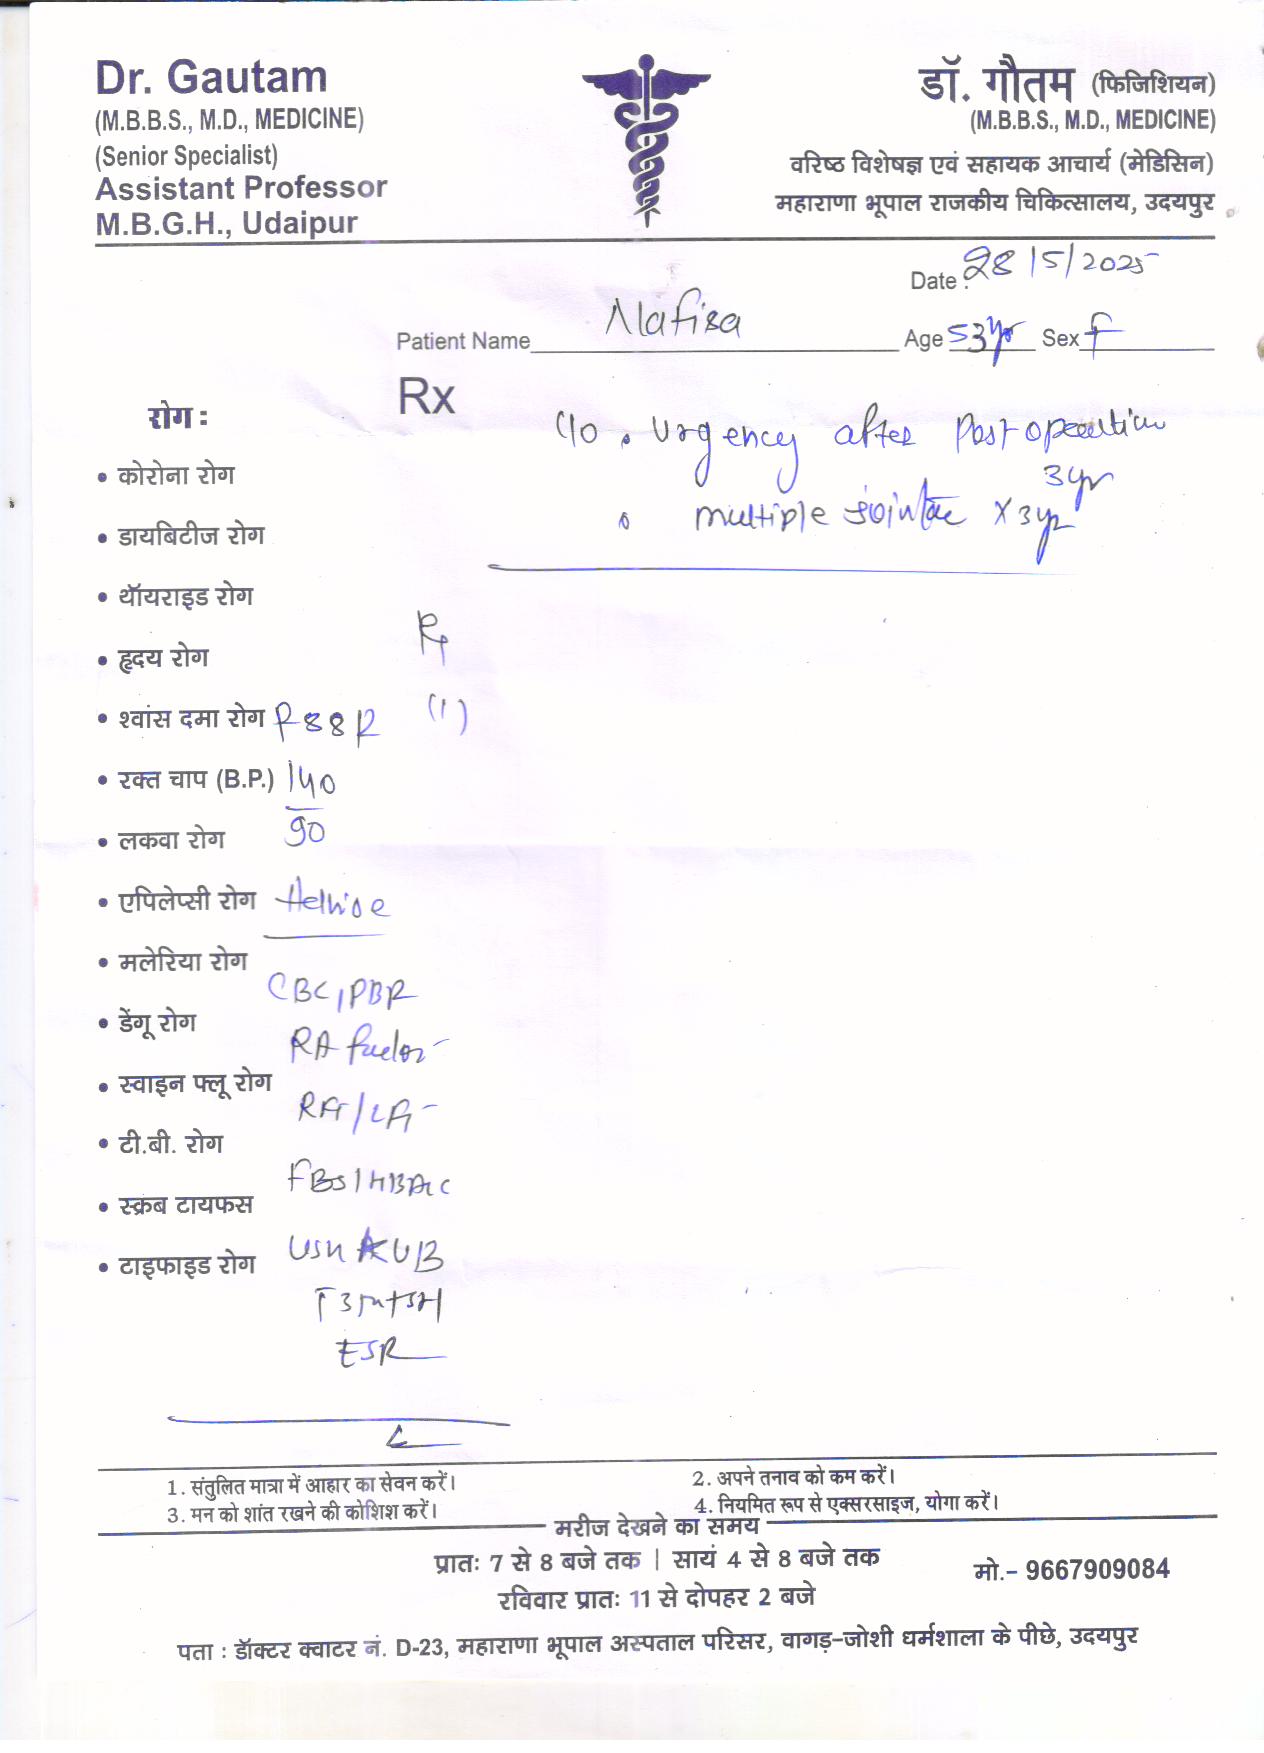 Dr. Gautam
(M.B.B.S., M.D., MEDICINE)
(Senior Specialist)
Assistant Professor
M.B.G.H., Udaipur
डॉ. गौतम (फिजिशियन)
(M.B.B.S., M.D., MEDICINE)
वरिष्ठ विशेषज्ञ एवं सहायक आचार्य (मेडिसिन)
महाराणा भूपाल राजकीय चिकित्सालय, उदयपुर
Date : 28/5/2025
Patient Name Nafisa Age 53yr Sex F
Rx
रोग :
C/o • Urgency after Post operation
3yr
• multiple X 3yr
• कोरोना रोग
• डायबिटीज रोग
• थॉयराइड रोग
• हृदय रोग
• श्वांस दमा रोग (1)
• रक्त चाप (B.P.) 140
90
• लकवा रोग
• एपिलेप्सी रोग
• मलेरिया रोग
CBC,
• डेंगू रोग
RA factor
• स्वाइन फ्लू रोग
• टी.बी. रोग
FBS/HBA1C
• स्क्रब टायफस
• टाइफाइड रोग
ESR
1. संतुलित मात्रा में आहार का सेवन करें।
2. अपने तनाव को कम करें।
3. मन को शांत रखने की कोशिश करें।
4. नियमित रूप से एक्सरसाइज, योगा करें।
मरीज देखने का समय
प्रातः 7 से 8 बजे तक | सायं 4 से 8 बजे तक
रविवार प्रातः 11 से दोपहर 2 बजे
मो.- 9667909084
पता : डॉक्टर क्वाटर नं. D-23, महाराणा भूपाल अस्पताल परिसर, वागड़-जोशी धर्मशाला के पीछे, उदयपुर